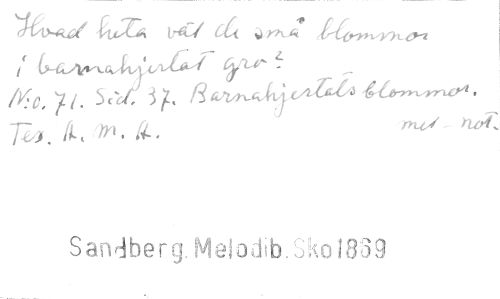 Hvad heta väl de små blommor
i barnahjertat gro?
N:o. 71. Sid. 37. Barnahjertats blommor.
Tex. A. M. A. mel-not.
Sandberg. Melodib. Sko 1869